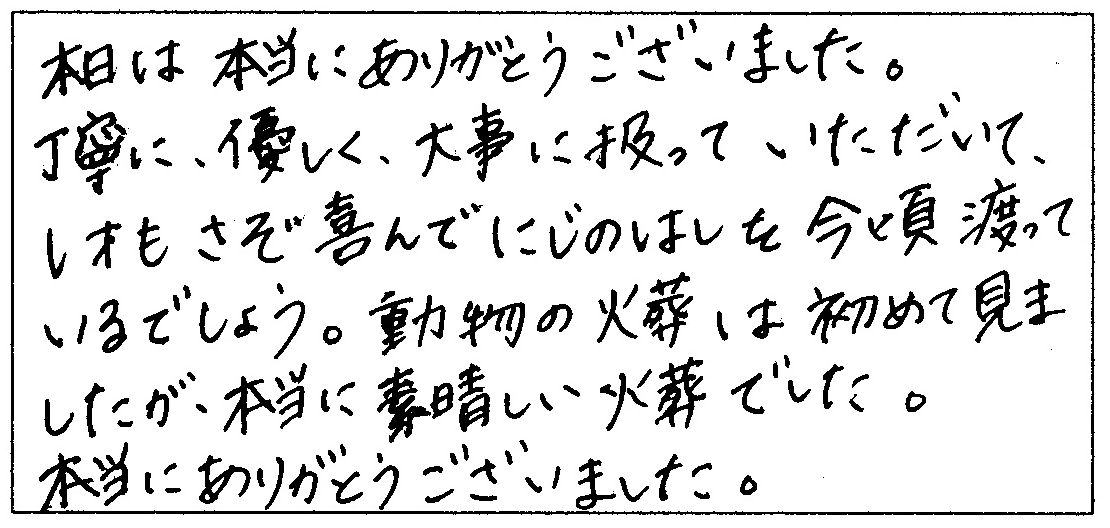 本日は本当にありがとうございました。
丁寧に、優しく、大事に扱っていただいて、
レオもさぞ喜んでにじのはしを今頃渡って
いるでしょう。動物の火葬は初めて見ま
したが、本当に素晴しい火葬でした。
本当にありがとうございました。